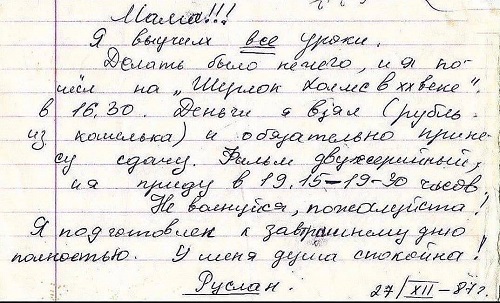 Мама!!!
Я выучил все уроки.
Делать было нечего, и я по-
шёл на „Шерлок Холмс в XX веке".
в 16.30. Деньги я взял (рубль
из кошелька) и обязательно прине-
су сдачу. Фильм двухсерийный,
и я приду в 19.15-19-30 часов
Не волнуйся, пожалуйста!
Я подготовлен к завтрашнему дню
полностью. У меня душа спокойна!
Руслан.
27/XII-87г.